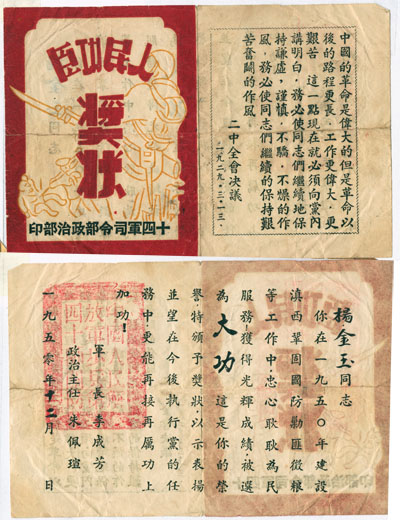 人民功臣
獎狀
十四軍司令部政治部印
中國的革命是偉大的但是革命以
後的路程更長、工作更偉大、更
艱苦 這一點現在就必須向黨內
講明白，務必使同志們繼續地保
持謙虛，謹慎、不驕、不燥的作
風，務必使同志們繼續的保持艱
苦奮鬪的作風。
二中全會决議
一九二九·三·一三·
楊金玉同志
你在一九五〇年建設
滇西鞏固國防勦匪徵粮
等工作中·忠心耿耿為民
服務！獲得光輝成績·被選
為大功 這是你的榮
譽·特頒予獎狀·以示表揚
並望在今後执行黨的任
務中·更能再接再厲功上
加功！
軍長 李成芳
政治主任 朱佩瑄
一九五零年十二月 日